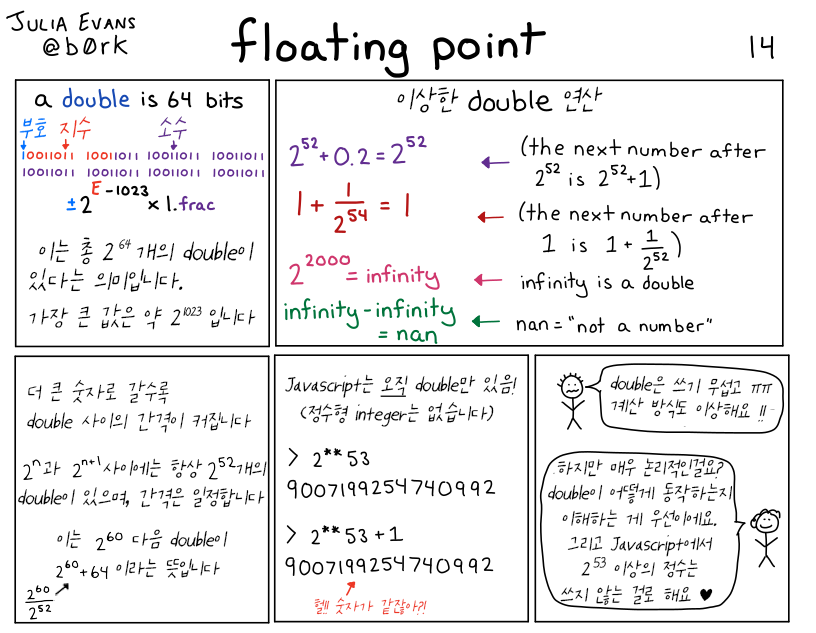 JULIA EVANS
@b0rk
floating point
14
a double is 64 bits
부호 지수 소수
10011011 10011011 10011011 10011011
10011011 10011011 10011011 10011011
±2^E-1023 × 1.frac
이는 총 2^64 개의 double이
있다는 의미입니다.
가장 큰 값은 약 2^1023 입니다
이상한 double 연산
2^52 + 0.2 = 2^52
(the next number after
2^52 is 2^52+1)
1 + 1/2^54 = 1
(the next number after
1 is 1 + 1/2^52)
2^2000 = infinity
infinity is a double
infinity - infinity
= nan
nan = "not a number"
더 큰 숫자로 갈수록
double 사이의 간격이 커집니다
2^n과 2^n+1 사이에는 항상 2^52개의
double이 있으며, 간격은 일정합니다
이는 2^60 다음 double이
2^60+64 이라는 뜻입니다
2^60/2^52
Javascript는 오직 double만 있음!
(정수형 integer는 없습니다)
> 2**53
9007199254740992
> 2**53+1
9007199254740992
헐!! 숫자가 같잖아?!
double은 쓰기 무섭고 ㅠㅠ
계산 방식도 이상해요 !!
하지만 매우 논리적인걸요?
double이 어떻게 동작하는지
이해하는 게 우선이에요.
그리고 Javascript에서
2^53 이상의 정수는
쓰지 않는 걸로 해요 ♥